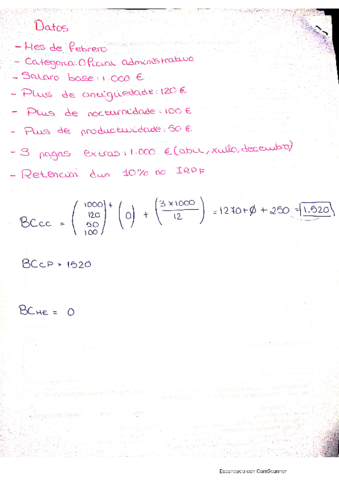 Datos
- Mes de febrero
- Categoria: Oficial administrativo
- Salario base: 1.000 €
- Plus de antigüedade: 120 €
- Plus de nocturnidade: 100 €
- Plus de productividade: 50 €
- 3 pagas extras: 1.000 € (abril, xullo, decembro)
- Retención dun 10% no IRPF
BCcc = (1000 120 50 100) + (0) + (3x1000/12) = 1270 + Ø + 250 = 1.520
BCCP = 1520
BCHE = 0
Escaneado con CamScanner